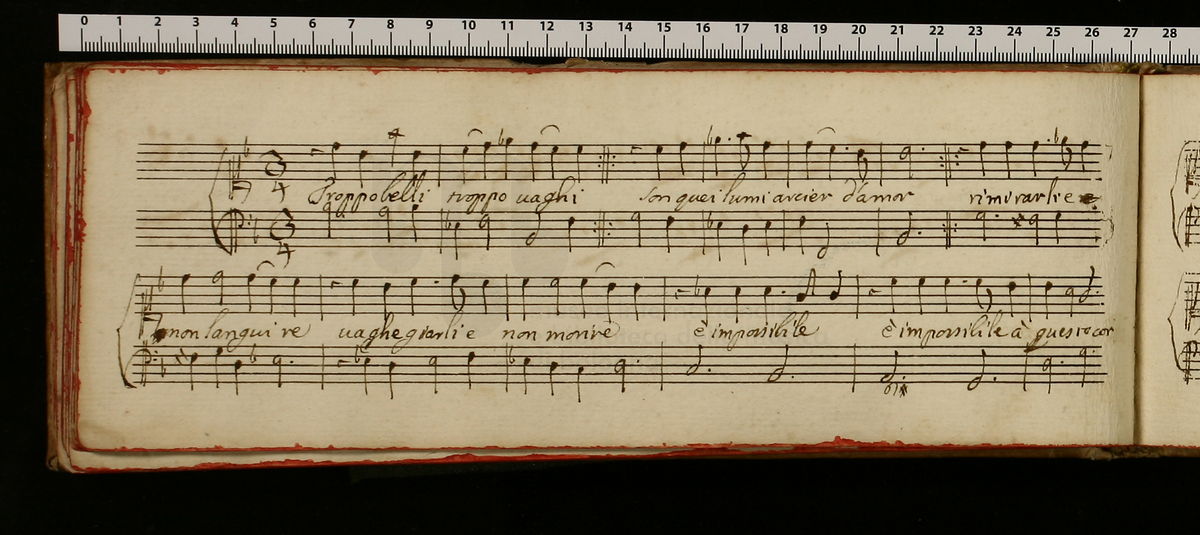 0 1 2 3 4 5 6 7 8 9 10 11 12 13 14 15 16 17 18 19 20 21 22 23 24 25 26 27 28
3 4
Troppo belli troppo vaghi son quei lumi arcier d'amor rimirarli e
3 4
non languire vaghegiarli e non morire è impossibile è impossibile à questo cor